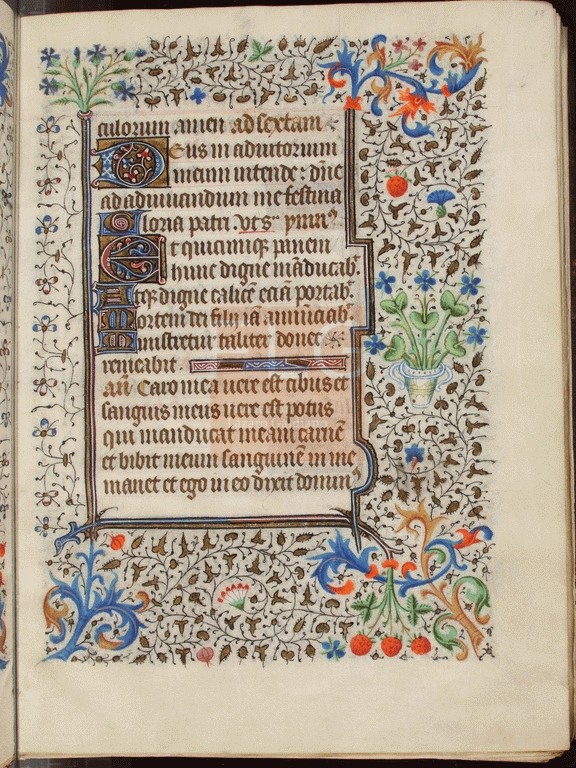 culorum amen ad sextam
Deus in adiutorium
meum intende: dñe
ad adiuuandum me festina
Gloria patri. vt sᵃ ymnˢ
Et quicumqʒ panem
hunc digne māducabᵗ
Atqʒ digne calicē eciā portabᵗ
Mortem dei filij iā anūciabᵗ
Ministretur taliter donec
remeabit.
añ Caro mea uere est cibus et
sanguis meus uere est potus
qui manducat meam carnē
et bibit meum sanguinē in me
manet et ego in eo dixit dominꝰ